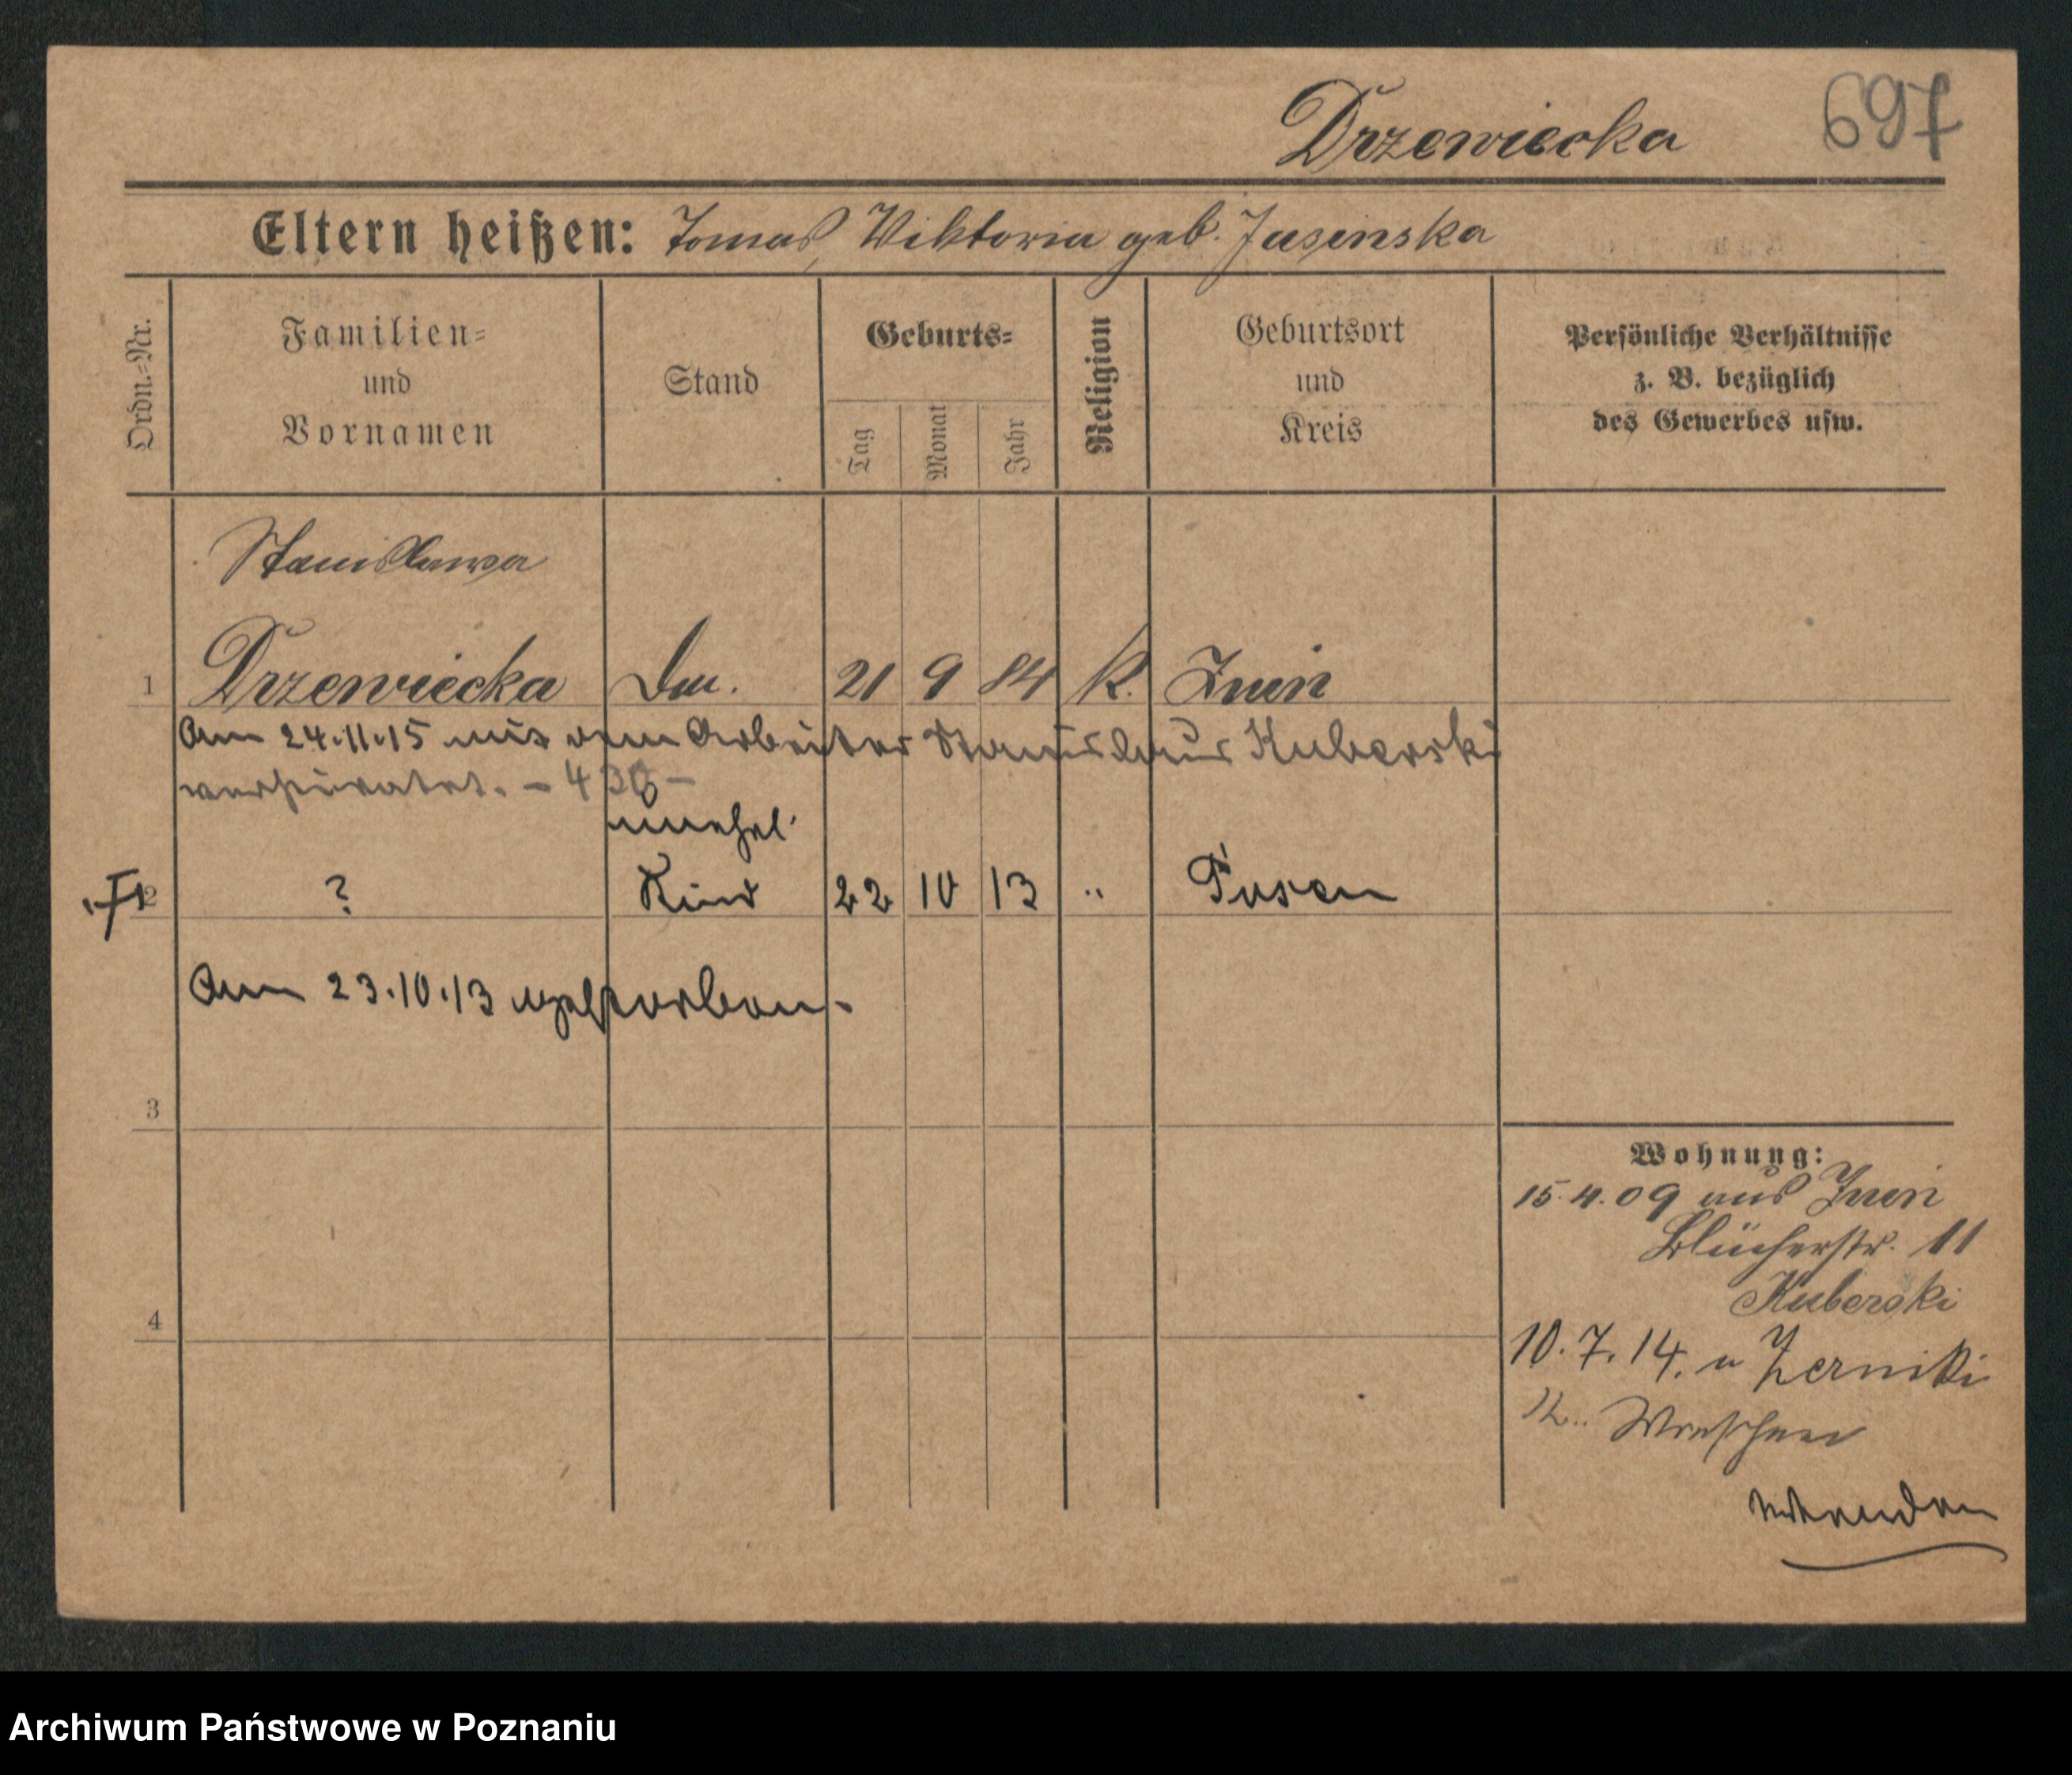 Drzewiecka 697
Eltern heißen: Tomas, Viktoria geb. Jasinska
Ordn.-Nr.
Familien-
und
Vornamen
Stand
Geburts-
Tag
Monat
Jahr
Religion
Geburtsort
und
Kreis
Persönliche Verhältnisse
z. B. bezüglich
des Gewerbes usw.
Stanislawa
1 Drzewiecka 21 9 84 K. Znin
Am 24.11.15 mit dem Arbeiter Stanislaus Kuberski
verheiratet. - 430 -
unehel.
2 ? Kind 22 10 13 " Posen
Am 23.10.13 gestorben.
3
Wohnung:
15.4.09 aus Znin
Blücherstr. 11
Kuberski
4
10.7.14. n Zerniki
K. Wreschen
wenden
Archiwum Państwowe w Poznaniu